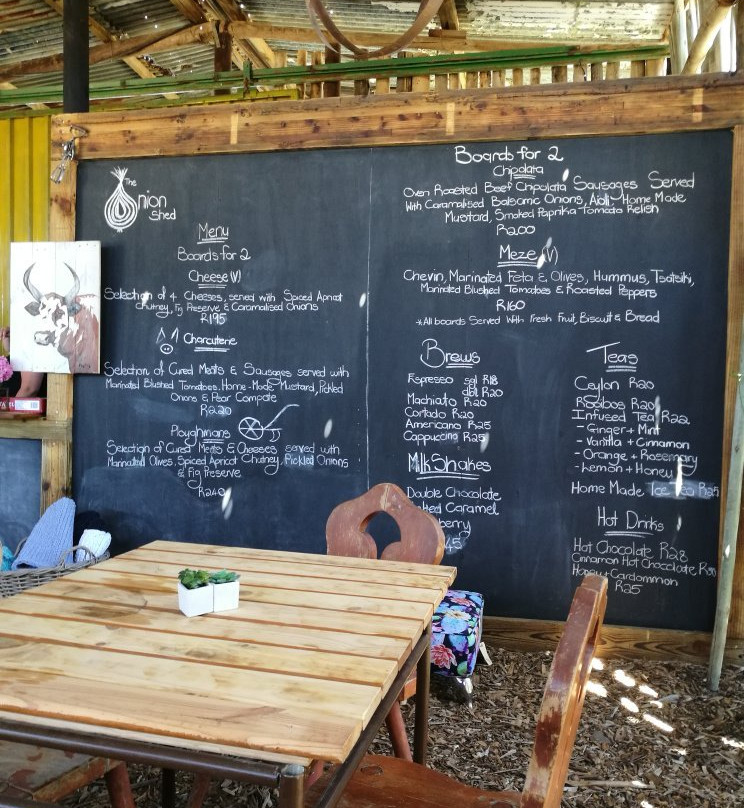 The
Onion
Shed
Menu
Boards for 2
Cheese (V)
Selection of 4 Cheeses, served with Spiced Apricot
Chutney, Fig Preserve & Caramalised Onions
R195
Charcuterie
Selection of Cured Meats & Sausages served with
Marinated Blushed Tomatoes, Home-Made Mustard, Pickled
Onions & Pear Compote
R220
Ploughmans
Selection of Cured Meats & Cheeses served with
Marinated Olives, Spiced Apricot Chutney, Pickled Onions
& Fig Preserve
R240
Boards for 2
Chipolata
Oven Roasted Beef Chipolata Sausages Served
With Caramalised Balsamic Onions, Aioli, Home Made
Mustard, Smoked Paprika Tomato Relish
R200
Meze (V)
Chevin, Marinated Feta & Olives, Hummus, Tsatsiki,
Marinated Blushed Tomatoes & Roasted Peppers
R160
*All boards Served With Fresh Fruit, Biscuit & Bread
Brews
Espresso sgl R18
dbl R20
Machiato R20
Cortado R20
Americano R25
Cappucino R25
MilkShakes
Double Chocolate
Caramel
Teas
Ceylon R20
Rooibos R20
Infused Tea R22
- Ginger + Mint
- Vanilla + Cinnamon
- Orange + Rosemary
- Lemon + Honey
Home Made Ice Tea R25
Hot Drinks
Hot Chocolate R28
Cinnamon Hot Chocolate
Honey + Cardommon
R25